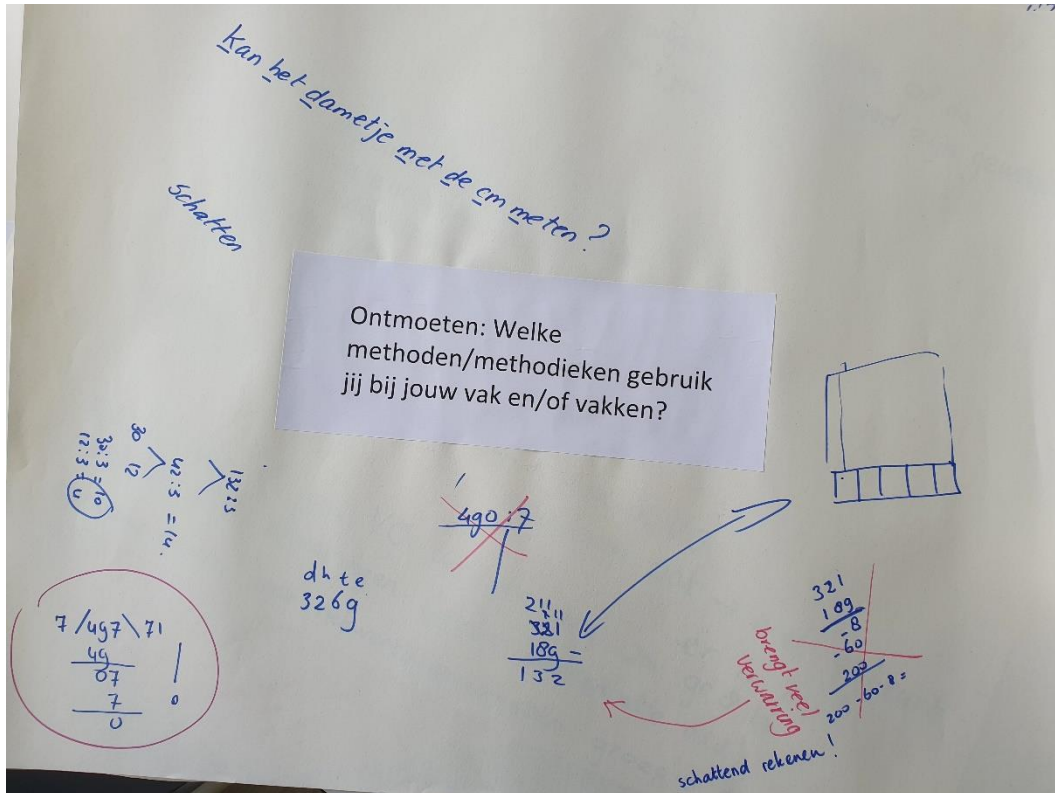 kan het dametje met de cm meten?
schatten
Ontmoeten: Welke
methoden/methodieken gebruik
jij bij jouw vak en/of vakken?
30
12
42:3 = 14.
30:3 = 10
12:3 = 4
490:7
d h t e
3269
7/497\71
49
07
7
0
!
211
321
189 -
132
321
189
-8
-60
200
200-60-8=
brengt veel
verwarring
schattend rekenen!